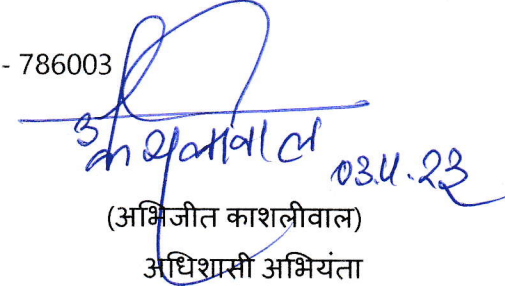 - 786003
03.4.23
(अभिजीत काशलीवाल)
अधिशासी अभियंता